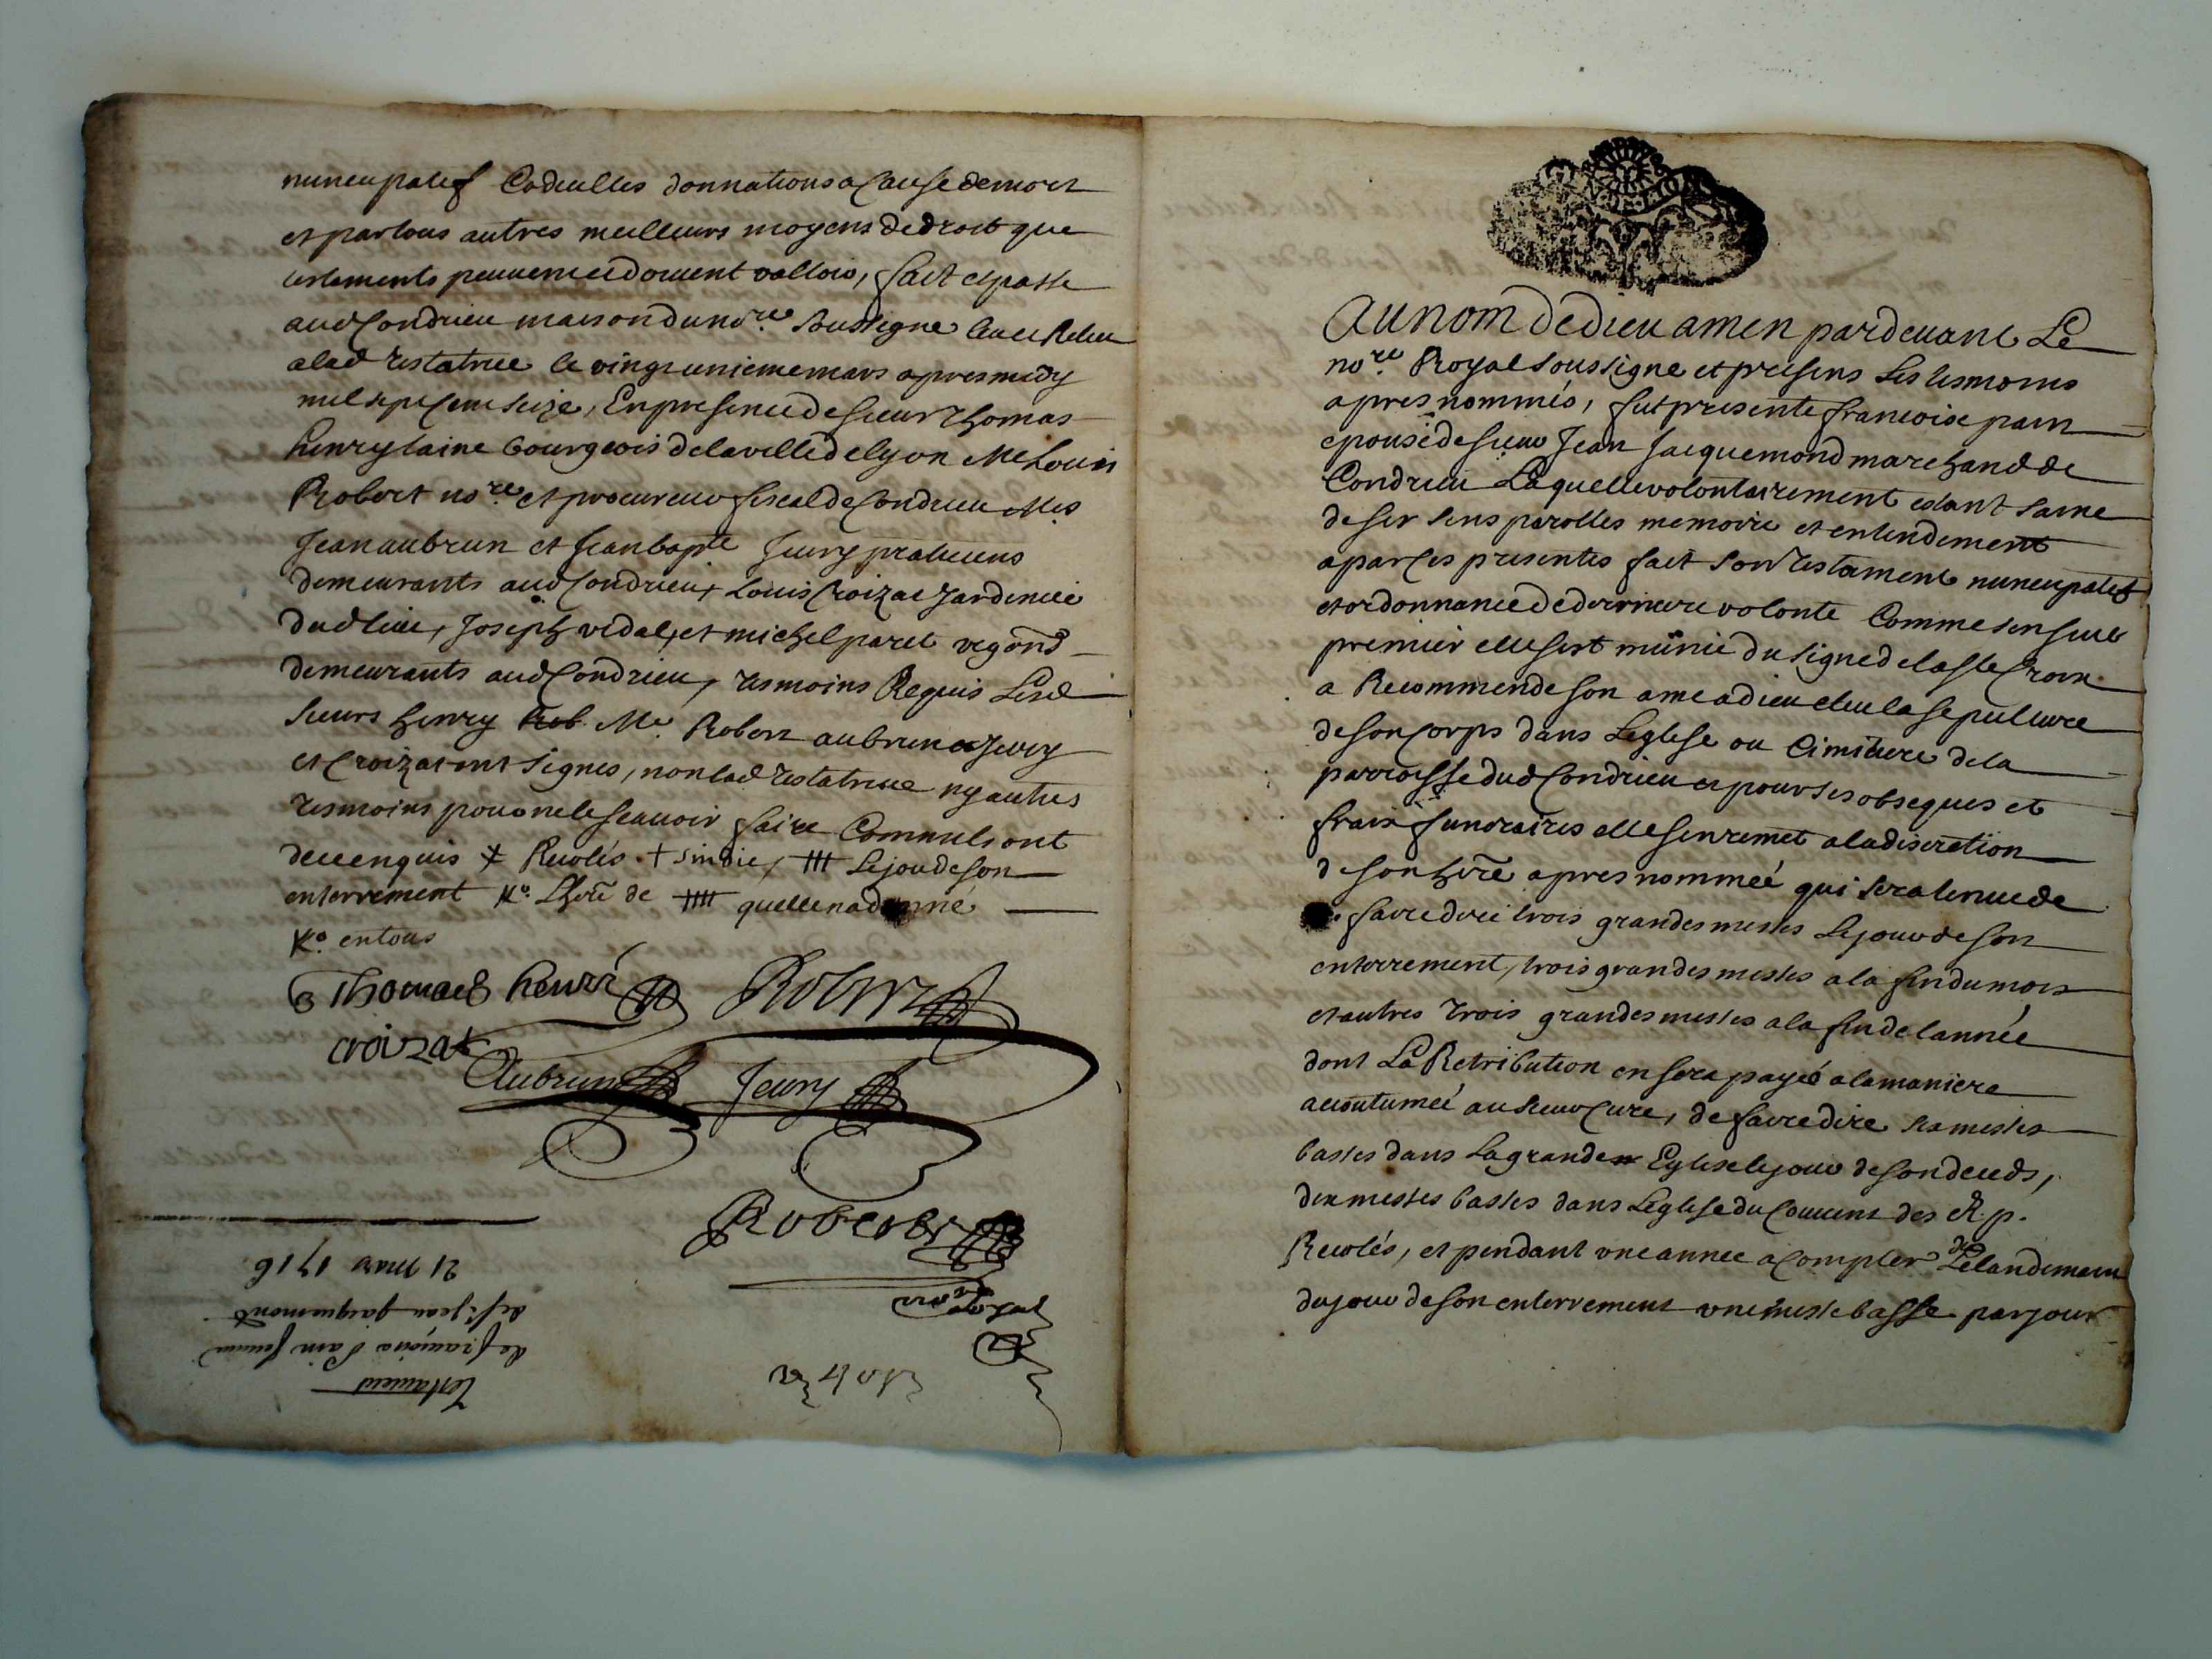 nuncupatif Codicilles donnations a Cause de mort
et par tous autres meilleurs moyens de droit que
testaments peuvent et doivent valloir, fait et passe
aud Condrieu maison du no.re soussigne leu et Releu
a lad testatrice le vingt unieme mars apres midy
mil sept Cent seize, En presence de sieur Thomas
henry laine bourgeois de la ville de lyon Me Louis
Robert no.re et procureur fiscal de Condrieu Mes
Jean aubrun et Jean bapte Jeury praticiens
demeurants aud Condrieu + Louis Croizat Jardinier
dud lieu, Joseph vidal, et michel paret
demeurants aud Condrieu, tesmoins Requis Lesd
sieurs henry Rob Me Robert aubrun et Jeury
et Croizat ont signes, non lad testatrice ny autres
tesmoins pour ne le scavoir faire Comme ils ont
de ce enquis Recolés + sindic, Le jour de son
enterrement Lhere de quelle na donné
en tous
Thomas henri Robert
croizat
Aubrun Jeury
Robert
Royal
21 mars 1716
Testament
de françoise Pain femme
de sr Jean Jacquemond
Au nom de dieu amen pardevant Le
no.re Royal soussigne et presens Les tesmoins
apres nommés, fut presente francoise pain
epouse de sieur Jean Jacquemond marchand de
Condrieu Laquelle volontairement estant saine
de ses sens parolles memoire et entendement
a par Ces presentes fait son testament nuncupatif
et ordonnance de derniere volonte Comme sensuit
premier elle sest munie du signe de la ste Croix
a Recommende son ame a dieu eleu la sepulture
de son Corps dans Leglise ou Cimitiere de la
parroisse dud Condrieu et pour ses obseques et
fraix funeraires elle sen remet a la discretion
de son here apres nommée qui sera tenue de
faire dire trois grandes messes Le jour de son
enterrement, trois grandes messes a la fin du mois
et autres trois grandes messes a la fin de lannée
dont La Retribution en sera payée a la maniere
accoutumée au sieur Cure, de faire dire messes
basses dans La grande Eglise le jour de son deceds,
dix messes basses dans Leglise du Couvent des R. p.
Recolés, et pendant une annee a Compter de Lelandemain
du jour de son enterrement une messe basse par jour